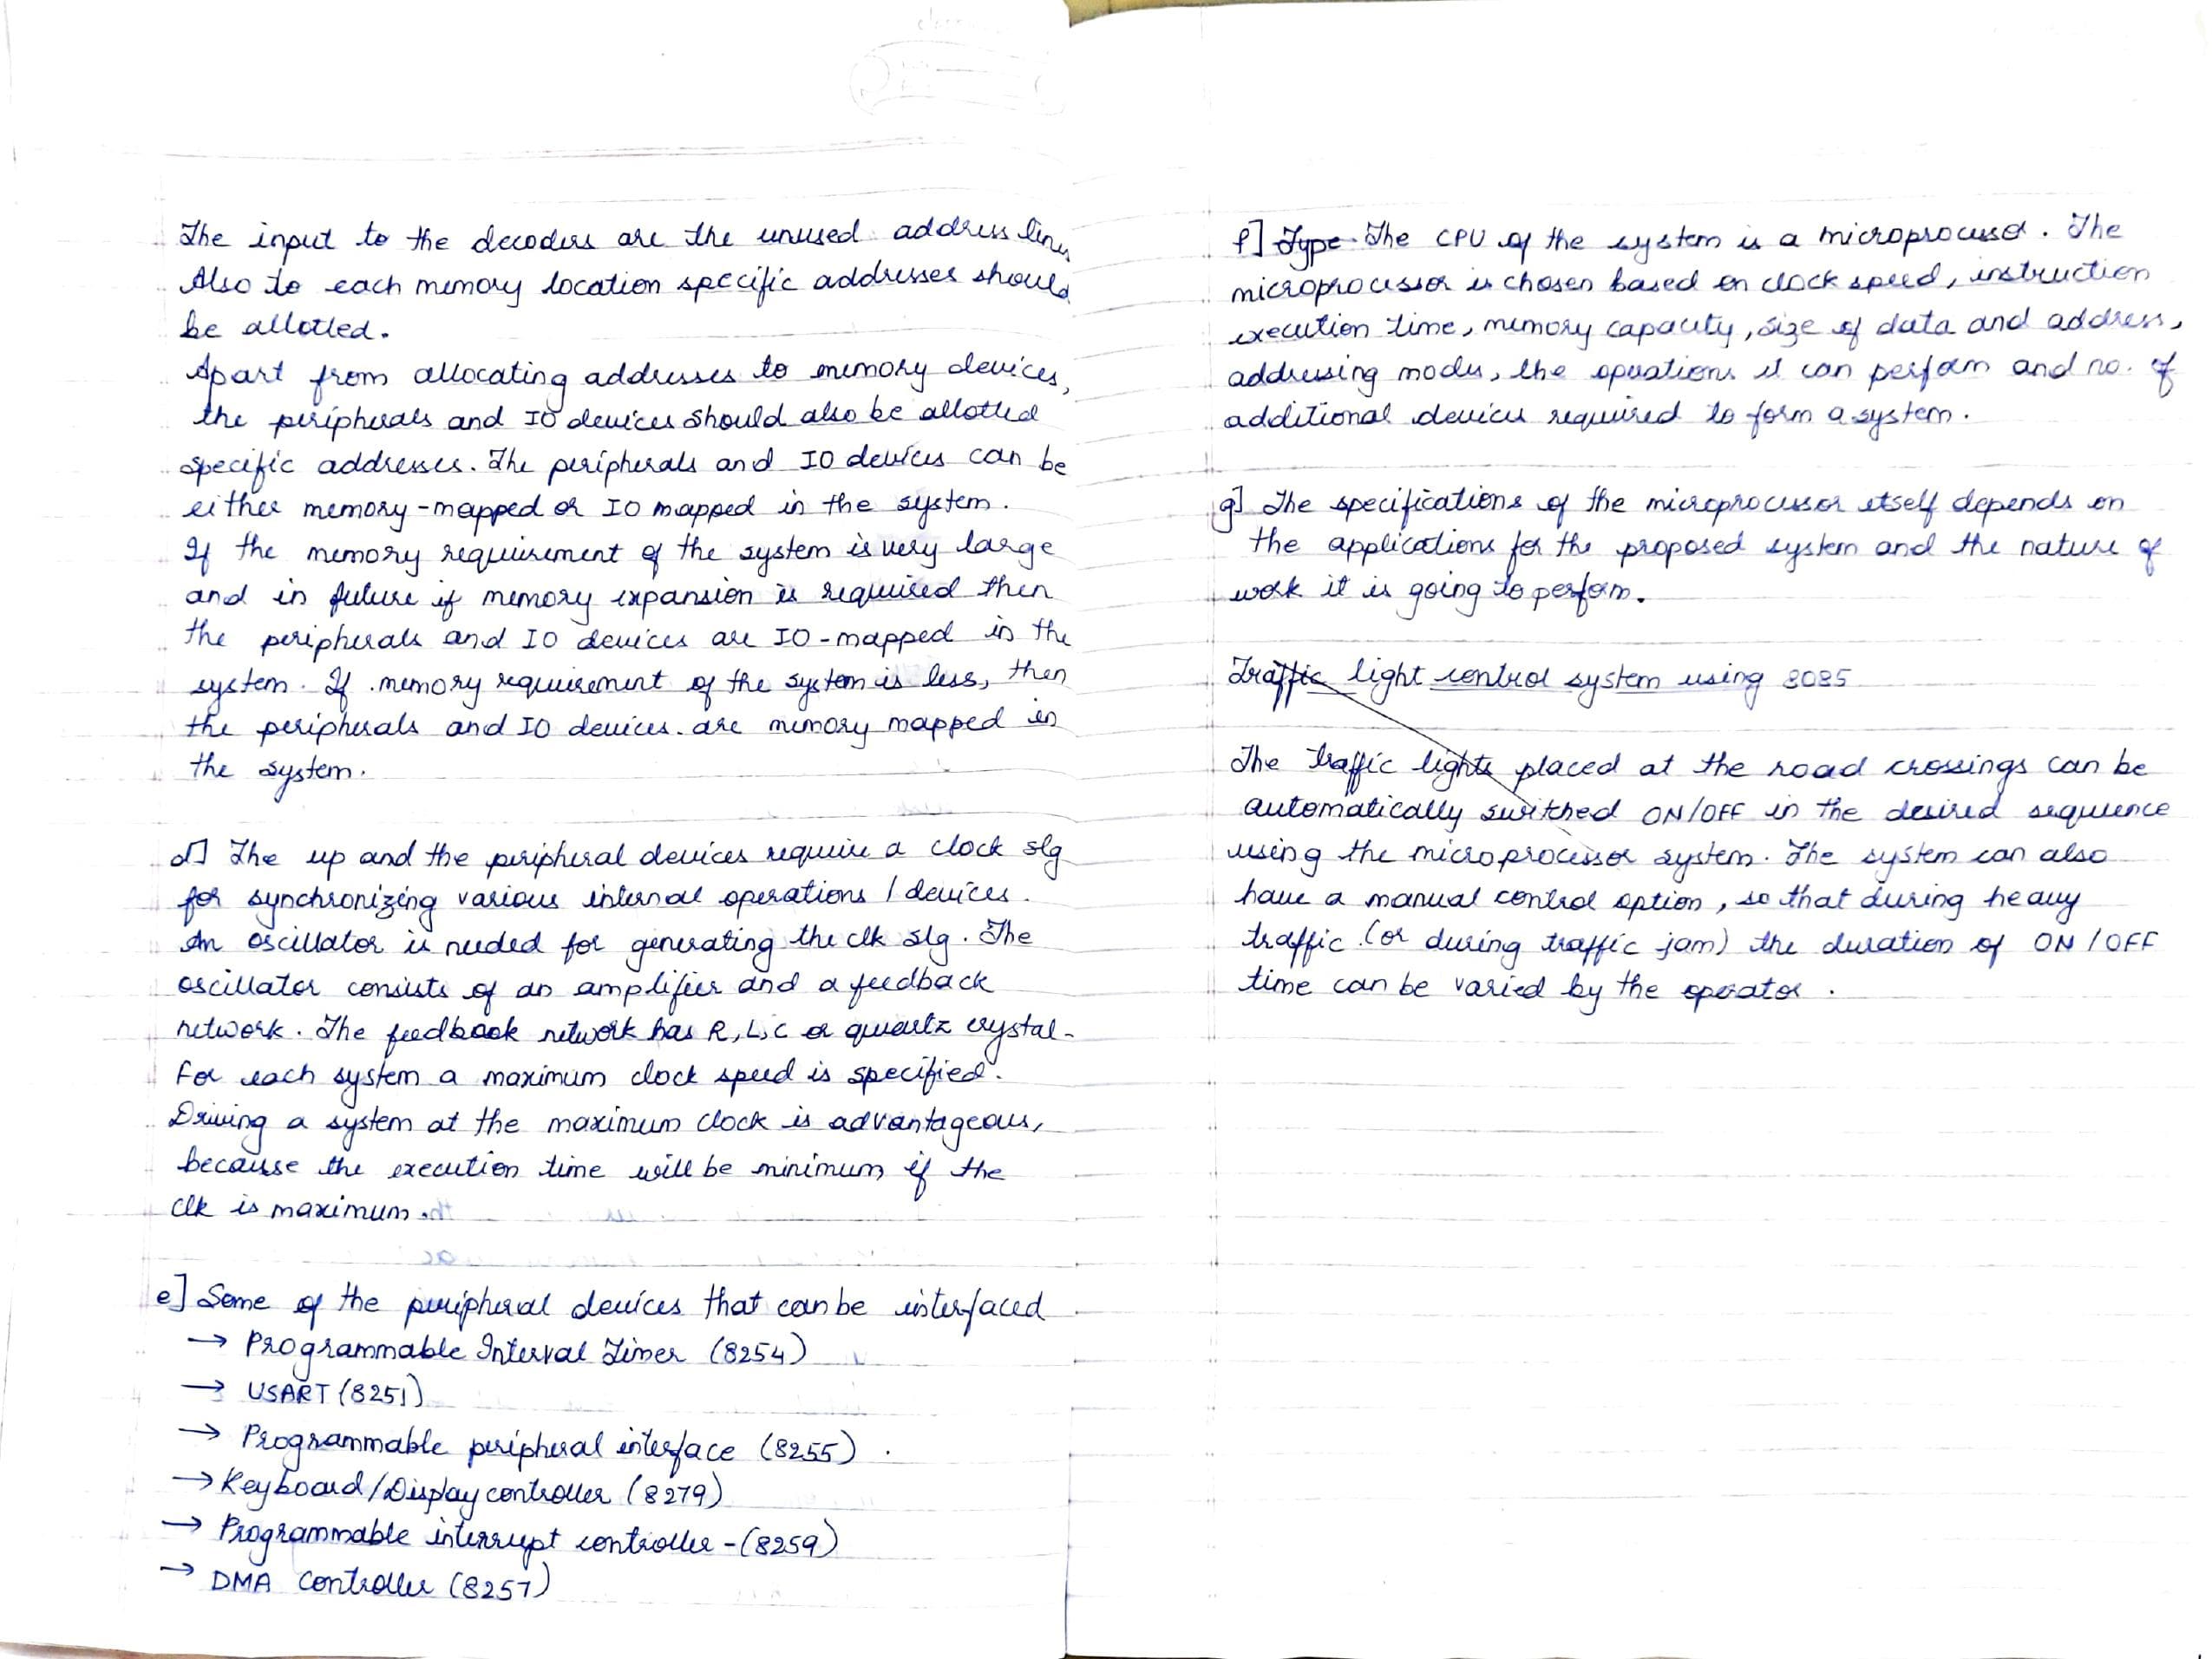 The input to the decoders are the unused address lines
Also to each memory location specific addresses should
be allotted.
Apart from allocating addresses to memory devices,
the peripherals and IO devices should also be allotted
specific addresses. The peripherals and IO devices can be
either memory-mapped or IO mapped in the system.
If the memory requirement of the system is very large
and in future if memory expansion is required then
the peripherals and IO devices are IO-mapped in the
system. If memory requirement of the system is less, then
the peripherals and IO devices are memory mapped in
the system.
d] The up and the peripheral devices require a clock slg
for synchronizing various internal operations / devices.
An oscillator is needed for generating the clk slg. The
oscillator consists of an amplifier and a feedback
network. The feedback network has R, L, C or quartz crystal.
For each system a maximum clock speed is specified.
Driving a system at the maximum clock is advantageous,
because the execution time will be minimum if the
clk is maximum.
e] Some of the peripheral devices that can be interfaced
→ Programmable Interval Timer (8254)
→ USART (8251)
→ Programmable peripheral interface (8255).
→ Keyboard/Display controller (8279)
→ Programmable interrupt controller - (8259)
→ DMA controller (8257)
f] Type The CPU of the system is a microprocessor. The
microprocessor is chosen based on clock speed, instruction
execution time, memory capacity, size of data and address,
addressing modes, the operations it can perform and no. of
additional devices required to form a system.
g] The specifications of the microprocessor itself depends on
the applications for the proposed system and the nature of
work it is going to perform.
Traffic light control system using 8085
The traffic lights placed at the road crossings can be
automatically switched ON/OFF in the desired sequence
using the microprocessor system. The system can also
have a manual control option, so that during heavy
traffic (or during traffic jam) the duration of ON/OFF
time can be varied by the operator.